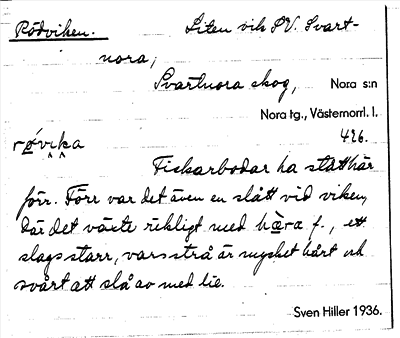 Rödviken. Liten vik SV. Svart-
nora,
Svartnora skog, Nora s:n
Nora tg., Västernorrl. l.
røvika 426.
Fiskarbodar ha stått här
förr. Förr var det även en slått vid viken,
där det växte rikligt med hära f., ett
slags starr, vars strå är mycket hårt och
svårt att slå av med lie.
Sven Hiller 1936.